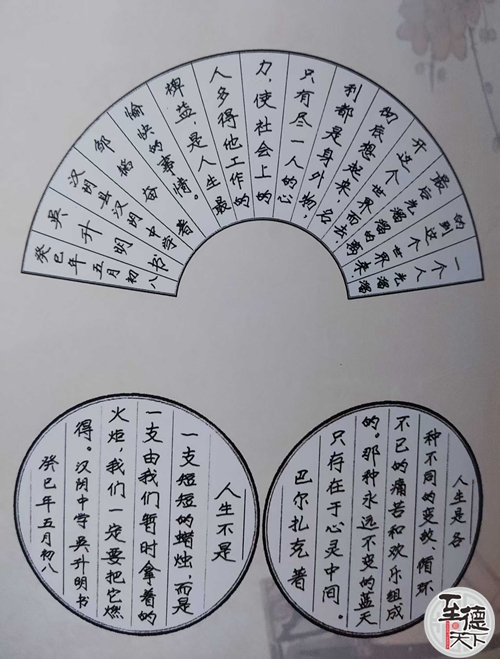 一个人光溜溜
的到这个世界来，
最后光溜溜的离
开这个世界而去，
彻底想起来，名
利都是身外物，
只有尽一人的心
力，使社会上的
人多得他工作的
裨益，是人生最
愉快的事情。
邹韬奋著
汉阴县汉阴中学
吴升明书
癸巳年五月初八
人生是各
种不同的变故、循环
不已的痛苦和欢乐组成
的。那种永远不变的蓝天
只存在于心灵中间。
巴尔扎克著
人生不是
一支短短的蜡烛，而是
一支由我们暂时拿着的
火炬，我们一定要把它燃
得。汉阴中学吴升明书
癸巳年五月初八
至德
天下